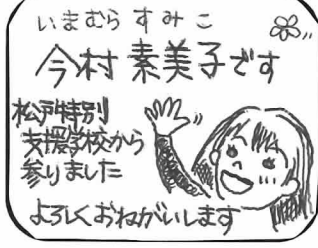 いまむら すみこ
今村 素美子です
松戸特別
支援学校から
参りました
よろしくおねがいします